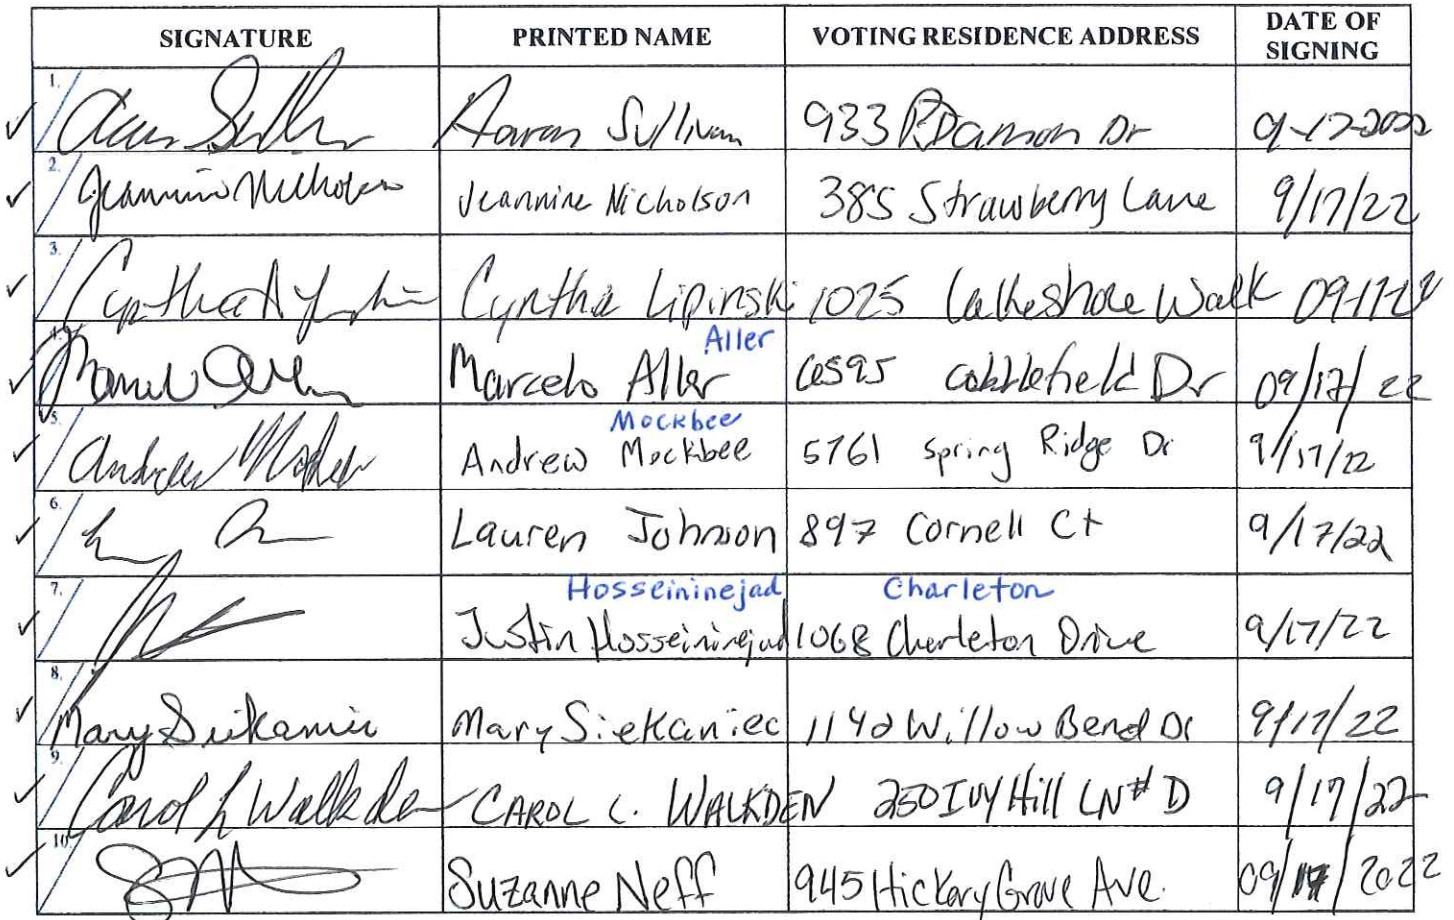 SIGNATURE PRINTED NAME VOTING RESIDENCE ADDRESS DATE OF SIGNING
1. Aaron Sullivan 933 Damon Dr 9-17-2022
2. Jeannine Nicholson Jeannine Nicholson 385 Strawberry Lane 9/17/22
3. Cynthia A Lipinski Cynthia Lipinski 1025 Lakeshore Walk 09-17-22
Aller
4. Marcelo Aller 6595 Cobblefield Dr 09/17/22
Mockbee
5. Andrew Mockbee Andrew Mockbee 5761 Spring Ridge Dr 9/17/22
6. Lauren Johnson 897 Cornell Ct 9/17/22
Hosseininejad Charleton
7. Justin Hosseininejad 1068 Charleton Drive 9/17/22
8. Mary Siekaniec Mary Siekaniec 1142 Willow Bend Dr 9/17/22
9. Carol L Walkden CAROL L. WALKDEN 250 Ivy Hill LN # D 9/17/22
10. Suzanne Neff 945 Hickory Grove Ave. 09/17/2022